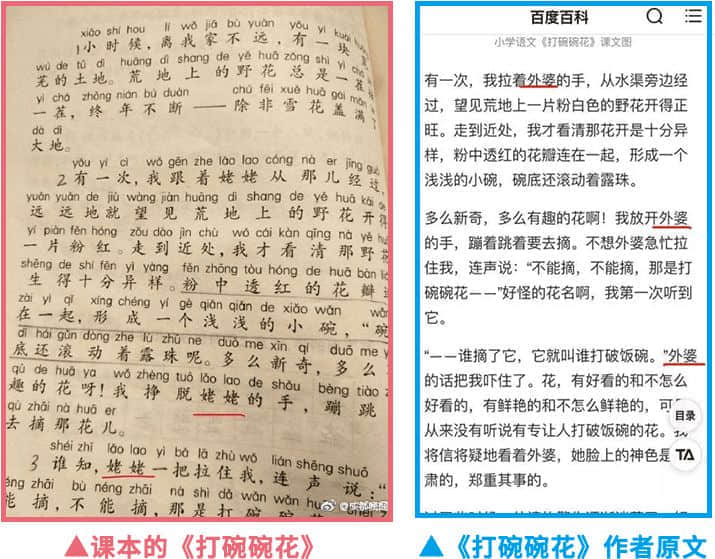 xiǎo shí hou lí wǒ jiā bù yuǎn yǒu yí kuài
1小时候，离我家不远，有一块
wú de tǔ dì huāng dì shang de yě huā zǒng shì yì chá
芜的土地。荒地上的野花总是一茬接
yì chá zhōng nián bú duàn chú fēi xuě huā gài mǎn
一茬，终年不断——除非雪花盖满了
dà dì
大地。
yǒu yí cì wǒ gēn zhe lǎo lao cóng nà er jīng guò
2有一次，我跟着姥姥从那儿经过，
yuǎn yuǎn de jiù wàng jiàn huāng dì shang de yě huā kāi de
远远地就望见荒地上的野花开得
yí piàn fěn hóng zǒu dào jìn chù wǒ cái kàn qīng nà yě huā
一片粉红。走到近处，我才看清那野花
shēng de shí fēn yì yàng fěn zhōng tòu hóng de huā bàn
生得十分异样。粉中透红的花瓣
zài yì qǐ xíng chéng yí gè qiǎn qiǎn de xiǎo wǎn wǎn
在一起，形成一个浅浅的小碗，“碗
dǐ hái gǔn dòng zhe lù zhū ne duō me xīn qí duō me
底还滚动着露珠呢。多么新奇，多么
qù de huā ya wǒ zhèng tuō lǎo lao de shǒu bèng tiào
趣的花呀！我挣脱姥姥的手，蹦跳
qù zhāi nà huā er
去摘那花儿。
shéi zhī lǎo lao yì bǎ lā zhù wǒ lián shēng shuō
3谁知，姥姥一把拉住我，连声说：“
néng zhāi bù néng zhāi nà shì dǎ wǎn wǎn huā
能摘，不能摘，那是打碗碗花
▲课本的《打碗碗花》
百度百科
小学语文《打碗碗花》课文图
有一次，我拉着外婆的手，从水渠旁边经
过，望见荒地上一片粉白色的野花开得正
旺。走到近处，我才看清那花开是十分异
样，粉中透红的花瓣连在一起，形成一个
浅浅的小碗，碗底还滚动着露珠。
多么新奇，多么有趣的花啊！我放开外婆
的手，蹦着跳着要去摘。不想外婆急忙拉
住我，连声说：“不能摘，不能摘，那是打
碗碗花——”好怪的花名啊，我第一次听到
它。
“——谁摘了它，它就叫谁打破饭碗。”外婆
的话把我吓住了。花，有好看的和不怎么
好看的，有鲜艳的和不怎么鲜艳的，可
从来没有听说有专让人打破饭碗的花。我
将信将疑地看着外婆，她脸上的神色是
肃的，郑重其事的。
目录
▲《打碗碗花》作者原文